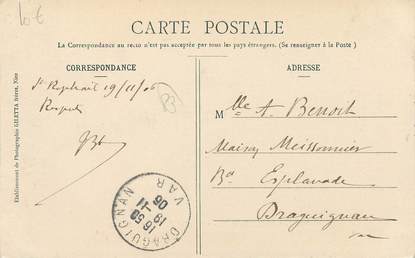 10 €
CARTE POSTALE
La Correspondance au recto n'est pas acceptée par tous les pays étrangers. (Se renseigner à la Poste)
CORRESPONDANCE
ADRESSE
St Raphaël 19/11/06
Etablissement de Photographie GILETTA frères, Nice
Mlle A. Benoit
Maison Meissonnier
Bd Esplanade
Draguignan
Var
DRAGUIGNAN
VAR
19 -11
06